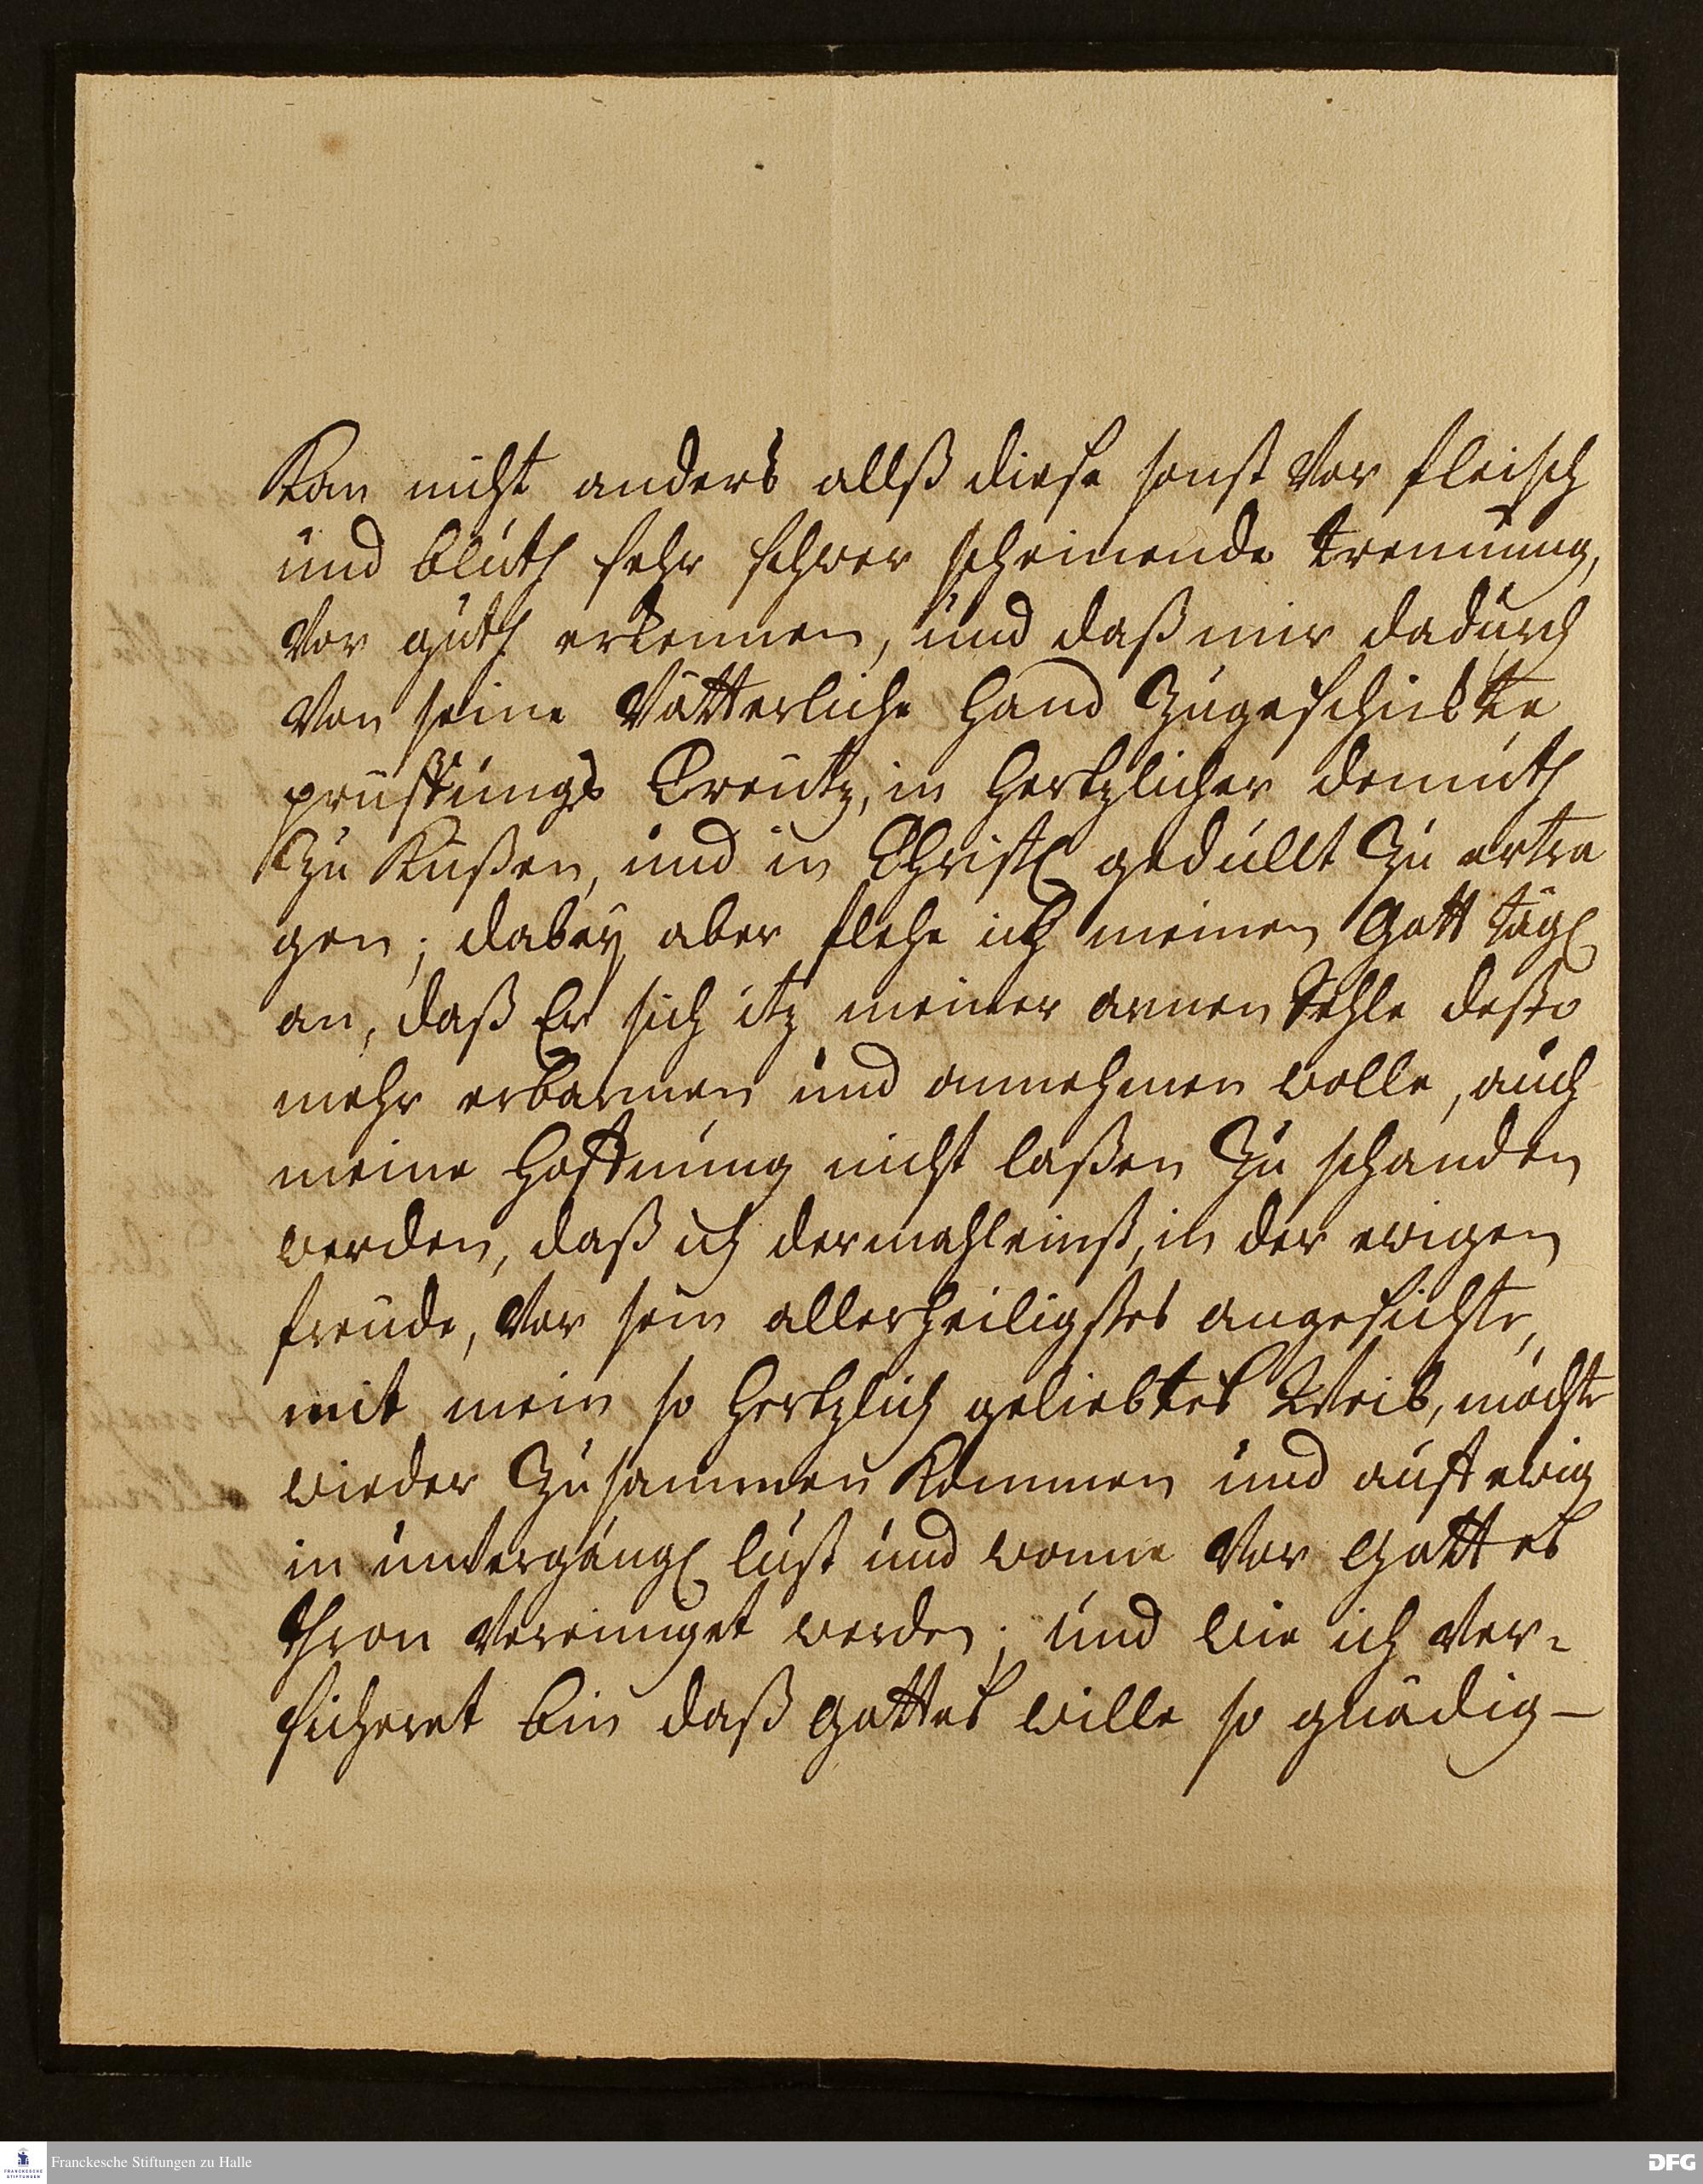 Kan nicht anders allß diese sonst vor fleisch
und bluth sehr schwer scheinende trennung,
vor guth erkennen, und daß mir dadurch
von seine vätterliche hand zugeschickte
prüffungs Creutz, in hertzlicher demuth
zu küßen, und in Christl gedullt zu ertra
gen; dabey aber flehe ich meinen Gott tägl
an, daß Er sich itz meiner armen Sehle desto
mehr erbarmen und annehmen wolle, auch
meine hoffnung nicht laßen zu schanden
werden, daß ich dermahleinst, in der ewigen
freude, vor sein allerheiligstes angesichte,
mit mein so hertzlich geliebtes Weib, möchte
wieder zusammen kommen und auff ewig
in untergängl lust und wonne vor Gottes
thron vereiniget werden; und wie ich ver-
sicheret bin daß Gottes wille so gnädig-
Franckesche Stiftungen zu Halle
DFG
FRANCKESCHE
STIFTUNGEN